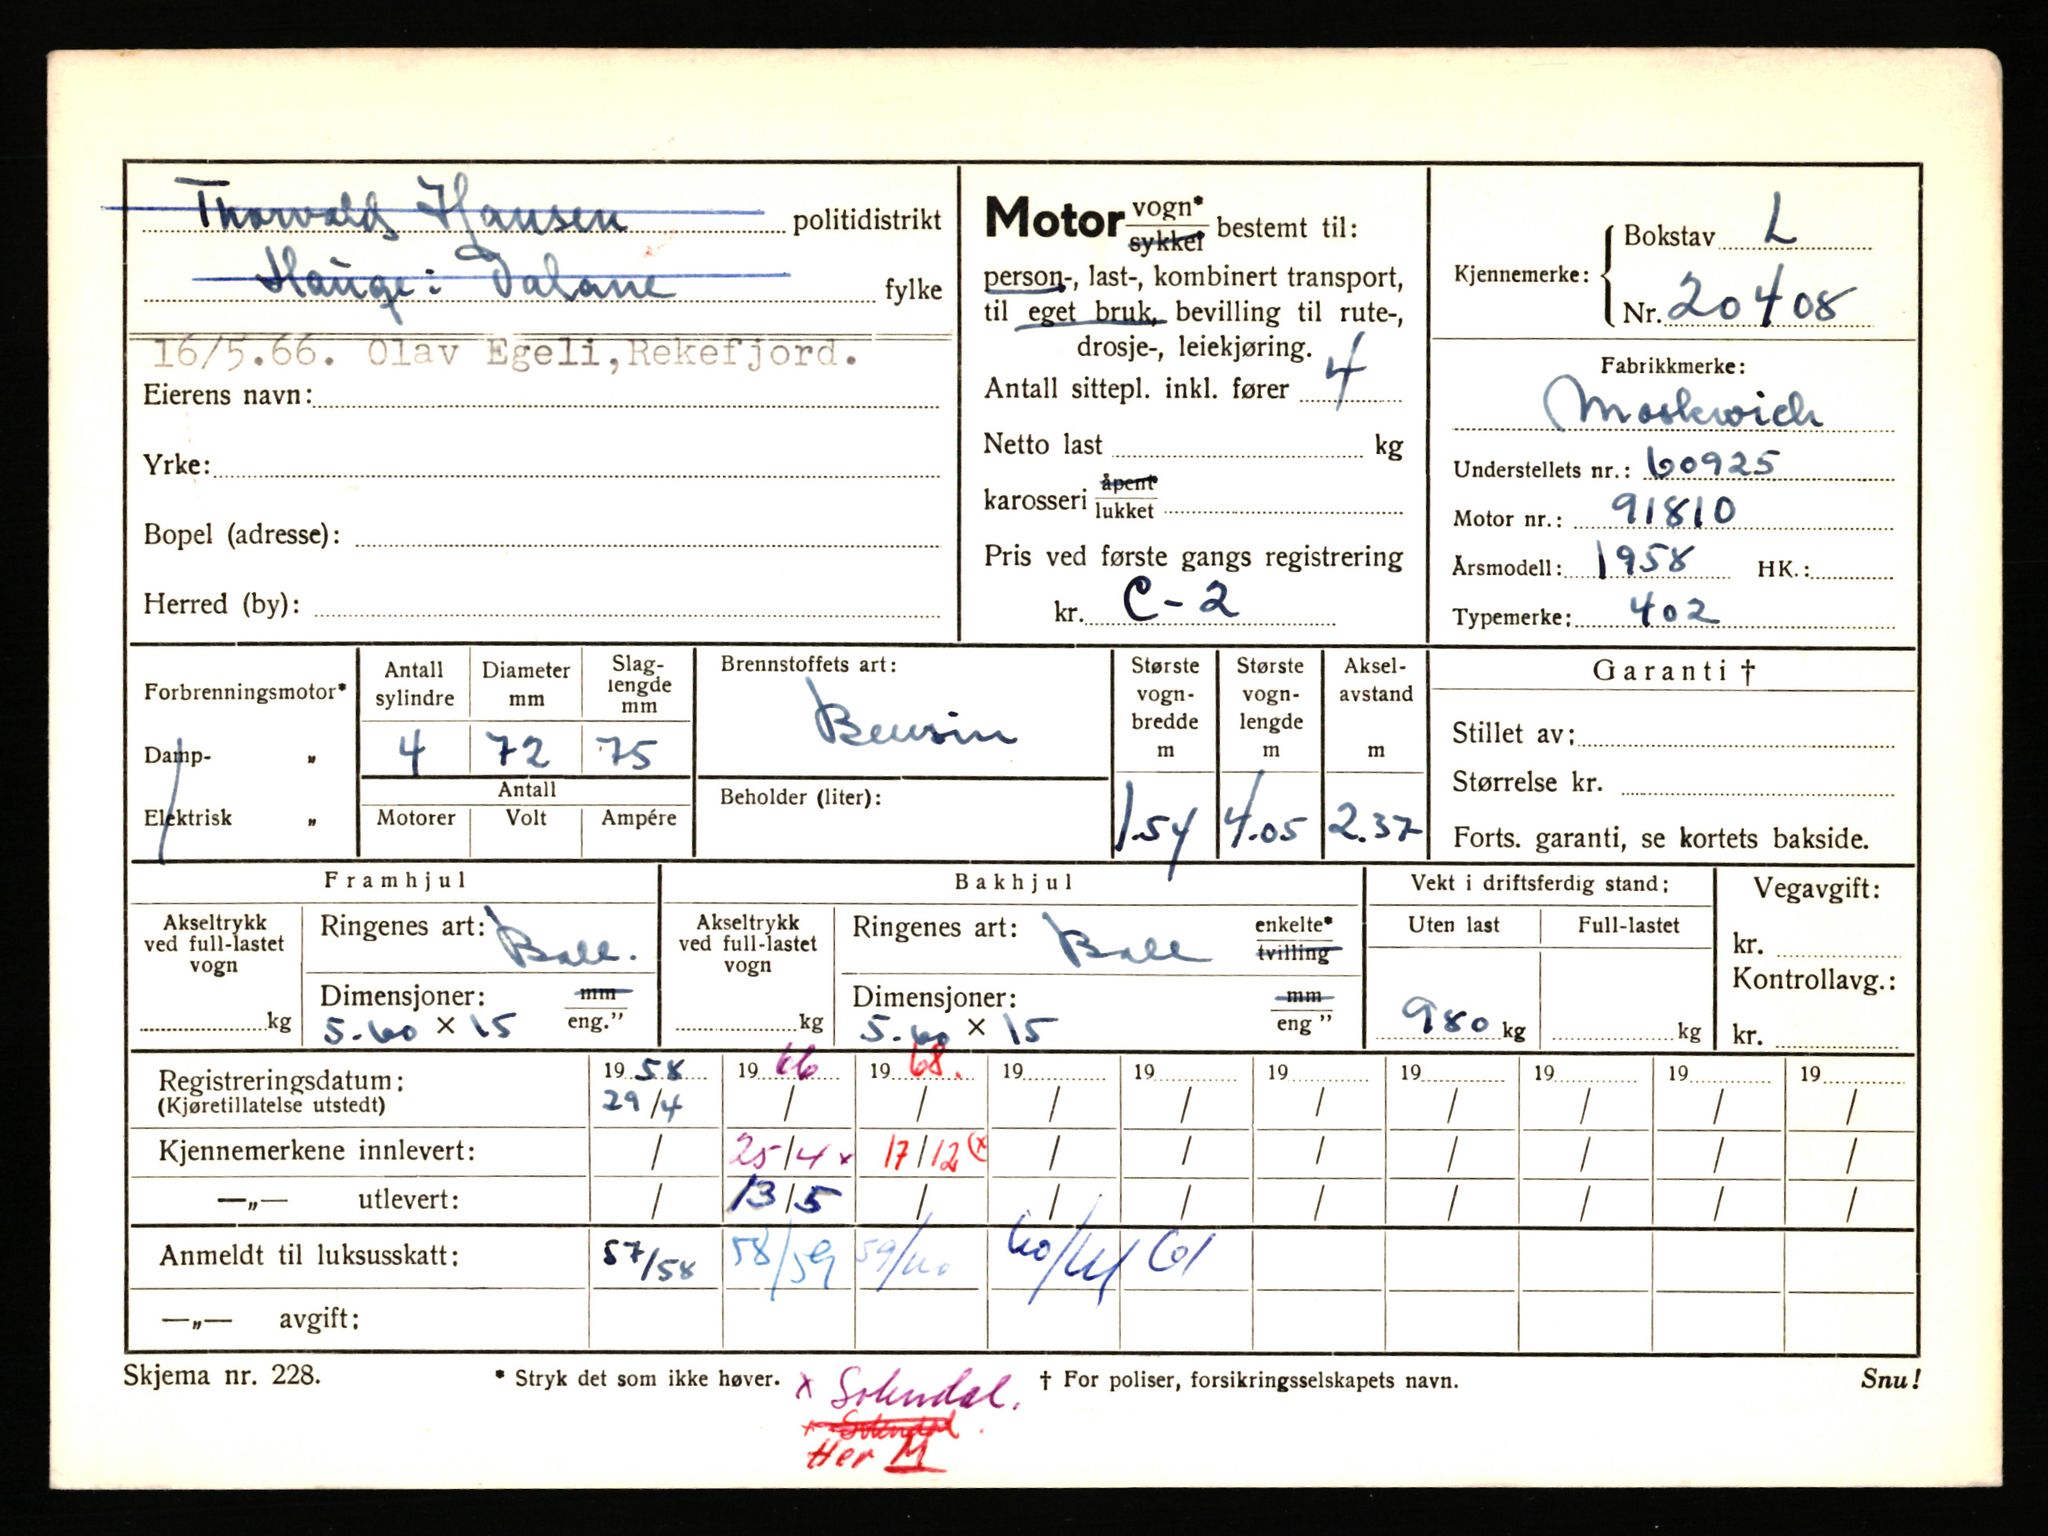 Thorvald Hansen politidistrikt
Hauge i Dalane fylke
16/5.66. Olav Egeli, Rekefjord.
Eierens navn:
Yrke:
Bopel (adresse):
Herred (by):
Motor vogn* / sykkel bestemt til:
person-, last-, kombinert transport,
til eget bruk, bevilling til rute-,
drosje-, leiekjøring.
Antall sittepl. inkl. fører 4
Netto last kg
karosseri åpent* / lukket
Pris ved første gangs registrering
kr. C-2
Kjennemerke: Bokstav L
Nr. 20408
Fabrikkmerke:
Moskwich
Understellets nr.: 60925
Motor nr.: 91810
Årsmodell: 1958 HK.:
Typemerke: 402
Forbrenningsmotor*
Damp- „
Elektrisk „
Antall sylindre 4
Diameter mm 72
Slaglengde mm 75
Antall
Motorer Volt Ampére
Brennstoffets art:
Bensin
Beholder (liter):
Største vognbredde m 1.54
Største vognlengde m 4.05
Akselavstand m 2.37
Garanti †
Stillet av:
Størrelse kr.
Forts. garanti, se kortets bakside.
Framhjul
Akseltrykk ved full-lastet vogn kg
Ringenes art: Ball.
Dimensjoner: mm / eng."
5.60 × 15
Bakhjul
Akseltrykk ved full-lastet vogn kg
Ringenes art: Ball enkelte* / tvilling
Dimensjoner: mm / eng "
5.60 × 15
Vekt i driftsferdig stand:
Uten last Full-lastet
980 kg kg
Vegavgift:
kr.
Kontrollavg.:
kr.
Registreringsdatum: 19 58 19 66 19 68. 19 19 19 19 19 19 19
(Kjøretillatelse utstedt) 29/4 / / / / / / / / /
Kjennemerkene innlevert: / 25/4 x 17/12 (x / / / / / / /
—„— utlevert: / 13/5 / / / / / / / /
Anmeldt til luksusskatt: 57/58 58/59 59/60 60/61 61
—„— avgift:
Skjema nr. 228. * Stryk det som ikke høver. † For poliser, forsikringsselskapets navn. Snu!
x Solendal.
x Solendal.
Her M